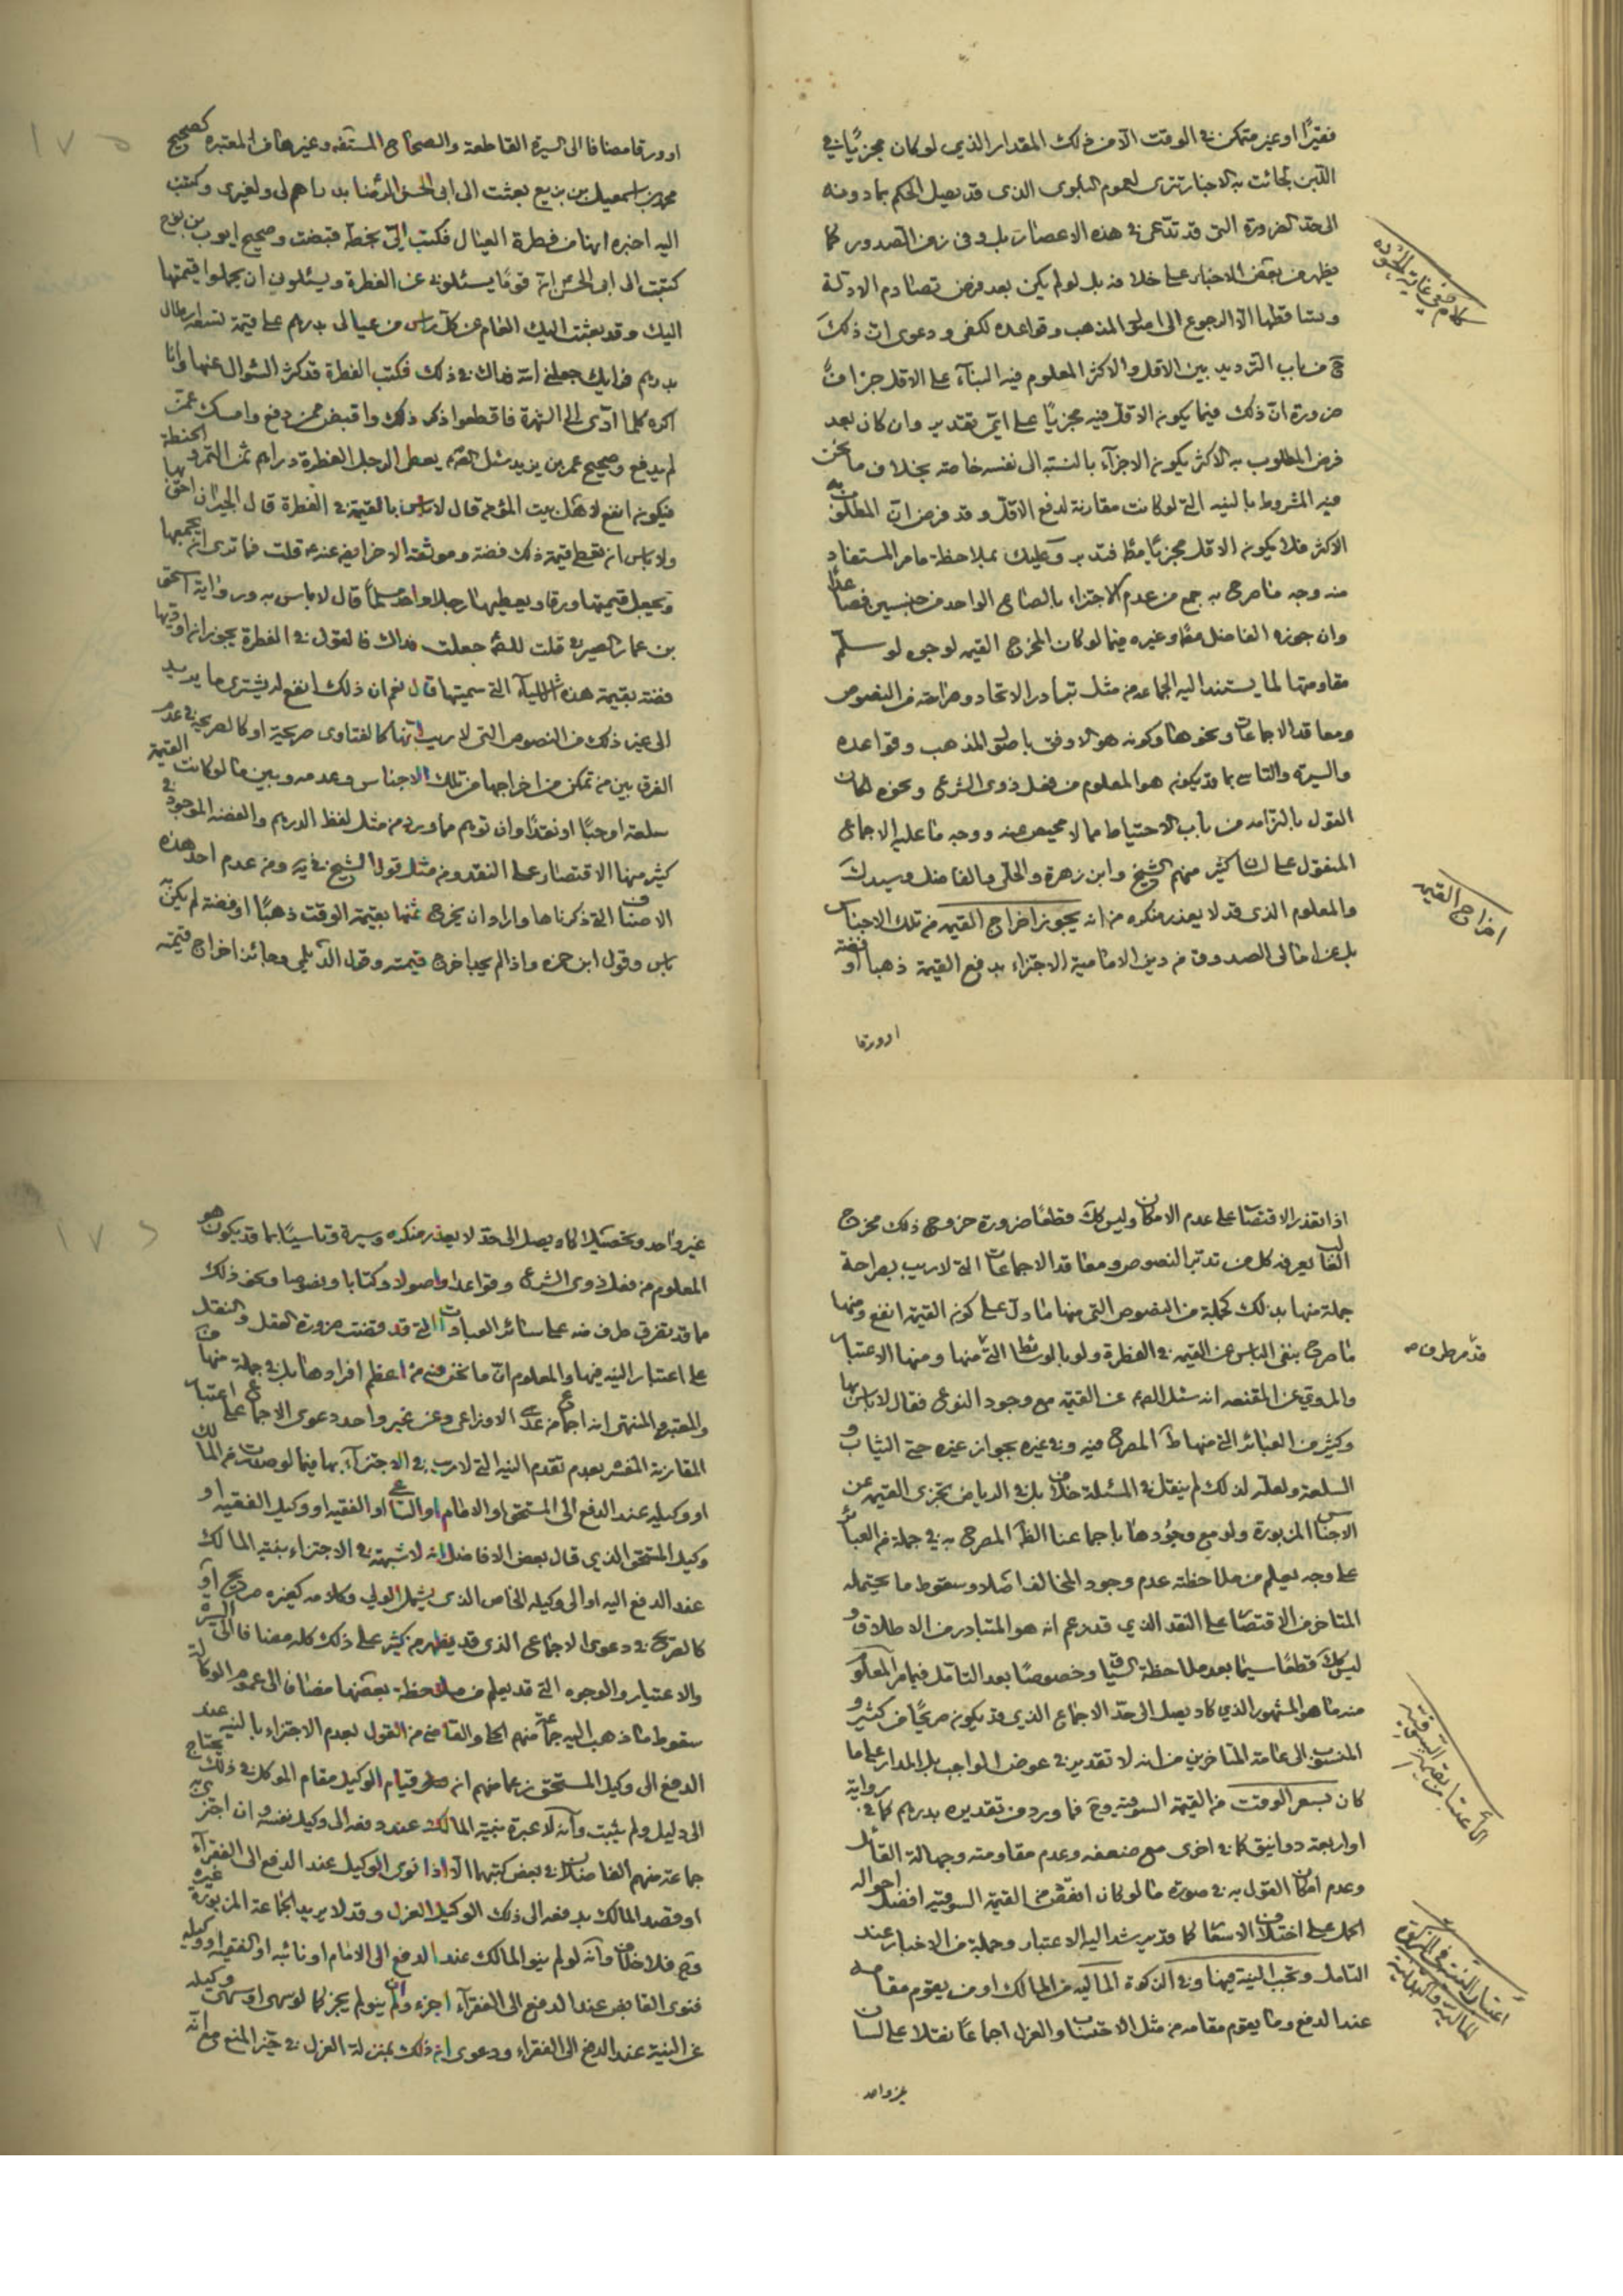 فقيرًا او غير متمكن في الوقت الا من ذلك المقدار الذي لو كان مجزيًا في
جائت به الاخبار تترى لعموم البلوى الذي قد يصل الحكم بما دونه
الى حد الضرورة التي قد تدعى في هذه الاعصار بل وفي زمن الصدور كما
يظهر من بعض الاخبار على خلافه بل لو لم يكن بعد فرض تصادم الادلة
وتساقطها الا الرجوع الى اصول المذهب وقواعده لكفى ودعوى ان ذلك
ح من باب الترديد بين الاقل والاكثر المعلوم فيه البناء على الاقل جزاف
ضرورة ان ذلك فيما يكون الاقل فيه مجزيًا على اي تقدير وان كان بعد
فرض المطلوب به الاكثر يكون الاجزاء بالنسبة الى نفسه خاصة بخلاف ما نحن
فيه المشروط بالنية التي لو كانت مقارنة لدفع الاقل وقد فرض ان المطلوب به
الاكثر فلا يكون الاقل مجزيًا فتدبر وعليك بملاحظة ما مر المستفاد
منه وجه ما صرح به جمع من عدم الاجتزاء بالصاع الواحد من جنسين فصاعدا
وان جوزه الفاضل وغيره فيما لو كان المخرج القيمه لوجوه لو سلم
مقاومتها لما يستند اليه الجماعه من مثل تبادر الاتحاد وصراحته من النصوص
ومعاقد الاجماعات ونحوها وكونه هو الاوفق باصول المذهب وقواعده
والسيرة والتاسي بما قد يكون هو المعلوم من فعل ذوى الشرع ونحوه لكان
القول بالتزامه من باب الاحتياط مما لا محيص عنه ووجه ما عليه الاجماع
المنقول على لسان كثير منهم الشيخ وابن زهرة والحلي والفاضل وسيدك
والمعلوم الذى قد لا يعذر منكره من انه يجوز اخراج القيمه من تلك الاجناس
بل عن امالى الصدوق من دين الامامية الاجتزاء بدفع القيمة ذهبا او فضة
او ورقا
كلام في غاية الجوده
اخراج القيمه
١٧٥
او ورقا مضافا الى السيرة القاطعة والصحاح المستفيضه وغيرها من المعتبره كصحيح
محمد بن اسمعيل بن بزيع بعثت الى ابى الحسن الرضا بدراهم لى ولغيرى وكتبت
اليه اخبره انها من فطرة العيال فكتب الي بخطه قبضت وصحيح ايوب بن نوح
كتبت الى ابى الحسن ان قومًا يسئلوني عن الفطرة ويسئلوني ان يحملوا قيمتها
اليك وقد بعثت اليك العام عن كل راس من عيالى بدرهم على قيمة تسعة ارطال
بدرهم فرايك جعلني الله فداك في ذلك فكتب الفطرة قد كثر السؤال عنها وانا
اكره كلما ادى الى الشهرة فاقطعوا ذكر ذلك واقبض ممن دفع وامسك عمن
لم يدفع وصحيح عمر بن يزيد سئل الصم يعطى الرجل الفطرة دراهم ثمن التمر والحنطة
فيكون انفع لاهل بيت المؤمن قال لا باس بالقيمة في الفطرة قال الجيران احق بها
ولا باس ان يعطى قيمة ذلك فضة وموثقه الاخر ايضه عنه قلت فما ترى ان نجمعها
ونجعل قيمتها ورقا ويعطيها رجلا واحدا مسلمًا قال لا باس به ورواية اسحق
بن عمار الصيرفي قلت للصم جعلت فداك ما تقول في الفطرة يجوز ان اؤديها
فضة بقيمة هذه الاشياء التي سميتها قال نعم ان ذلك انفع له يشترى ما يريد
الى غير ذلك من النصوص التي لا ريب انها كالفتاوى صريحة او كالصريحة في عدم
الفرق بين من تمكن من اخراجها من تلك الاجناس وعدمه وبين ما لو كانت القيمة
سلعة او حبًا او نقدًا وان توهم مما ورد من مثل لفظ الدرهم والفضة الموجود في
كثير منها الاقتصار على النقد ومن مثل قول الشيخ في يه ومن عدم احد هذه
الاصناف التي ذكرناها واراد ان يخرج ثمنها بقيمة الوقت ذهبًا او فضة لم يكن به
باس وقول ابن حمزه واذا لم يجد اخرج قيمته وقول الديلمي وجائز اخراج قيمته
اذا تعذر الاقتصار على عدم الامكان وليس كك قطعًا ضرورة خروج ذلك مخرج
الغالب يعرفه كل من تدبر النصوص ومعاقد الاجماعات التي لا ريب بصراحة
جملة منها بذلك كجملة من النصوص التي منها ما دل على كون القيمة انفع ومنها
ما صرح بنفي الباس عن القيمة في الفطرة ومنها الاعتبار
والمروي عن المقنعه انه سئل الصم عن القيمه مع وجود النوع فقال لا باس بها
وكثير من العبائر التي منها المصرح فيه وفي غيره بجواز غيره حتى الثياب و
السلعة ولعله لذلك لم ينقل في المسئلة خلاف بل في الرياض تجزى القيمه عن
الاجناس المزبورة ولو مع وجودها باجماعنا الظ المصرح به في جملة من العبائر
على وجه يعلم من ملاحظته عدم وجود المخالف اصلا وسقوط ما يحتمله
المتاخر من الاقتصار على النقد الذي قد زعم انه هو المتبادر من الاطلاق و
ليس كك قطعًا سيما بعد ملاحظة السياق وخصوصًا بعد التامل فيما مر المعلوم
منه ما هو المشهور الذي كاد يصل الى حد الاجماع الذي قد يكون صريحًا من كثير و
المنسوب الى عامة المتاخرين من انه لا تقدير في عوض الواجب بل المدار على ما
كان بسعر الوقت من القيمة السوقيه وح فما ورد من تقديره بدرهم كما في رواية
او اربعة دوانيق كما في اخرى مع ضعفه وعدم مقاومته وجهالة القائل
وعدم امكان القول به في صورة ما لو كان انقص من القيمة السوقيه افضل احواله
الحمل على اختلاف الاسعار كما قد يرشد اليه الاعتبار وجملة من الاخبار عند
التامل وتجب النية فيها وفي الزكوة الماليه من المالك او من يقوم مقامه
عند الدفع وما يقوم مقامه من مثل الاحتساب والعزل اجماعًا نقلا على لسان
غير واحد
قد مر طرف منه
الاعتبار بقيمة السوقية
اعتبار النية في الزكوة المالية والبدنية
١٧٦
غير واحد وتحصيلا كاد يصل الى حد لا يعذر منكره وسيرة وتاسيًا بما قد يكون هو
المعلوم من فعل ذوى الشرع وقواعدا واصولا وكتابا ونصوصا ونحو ذلك
مما قد تقرق طرف منه على سائر العبادات التي قد قضت ضرورة العقل والنقل
على اعتبار النيه فيها والمعلوم ان ما نحن فيه من اعظم افرادها بل في جملة منها
والمعتبر والمنتهى انه اجماع من عدى الاوزاعى وعن غير واحد دعوى الاجماع على اعتبار
المقارنة المفسر بعدم تقدم النيه التي لا ريب في الاجتزاء بها فيما لو صدرت من المالك
او وكيله عند الدفع الى المستحق او الامام او الساعي او الفقيه او وكيل الفقيه او
وكيل المستحق الذي قال بعض الافاضل انه لا شبهة في الاجتزاء بنية المالك
عند الدفع اليه او الى وكيله الخاص الذى يشمل الولي وكلامه كغيره صريح او
كالصريح في دعوى الاجماع الذى قد يظهر من كثير على ذلك كله مضافا الى السيرة
والاعتبار والوجوه التي قد يعلم من ملاحظة بعضها مضافا الى عموم الوكالة
سقوط ما ذهب اليه جماعة منهم الحلي والقاضي من القول بعدم الاجتزاء بالنيه عند
الدفع الى وكيل المستحق زعما منهم ان قيام الوكيل مقام الموكل في ذلك يحتاج
الى دليل ولم يثبت وانه لا عبرة بنية المالك عند دفعه الى وكيل نفسه وان اجتزى به
جماعة منهم الفاضلان في بعض كتبهما الا اذا نوى الوكيل عند الدفع الى الفقراء
او قصد المالك بدفعه الى ذلك الوكيل العزل وقد لا يريد الجماعة المزبورة غيره
وح فلا خلاف وانه لو لم ينو المالك عند الدفع الى الامام او نائبه او الفقيه او وكيله
فنوى القابض عند الدفع الى الفقراء اجزء وان لم ينو لم يجز كما لو سهى او سهى وكيله
عن النية عند الدفع الى الفقراء ودعوى ان ذلك بمنزلة العزل في حيز المنع مع انه